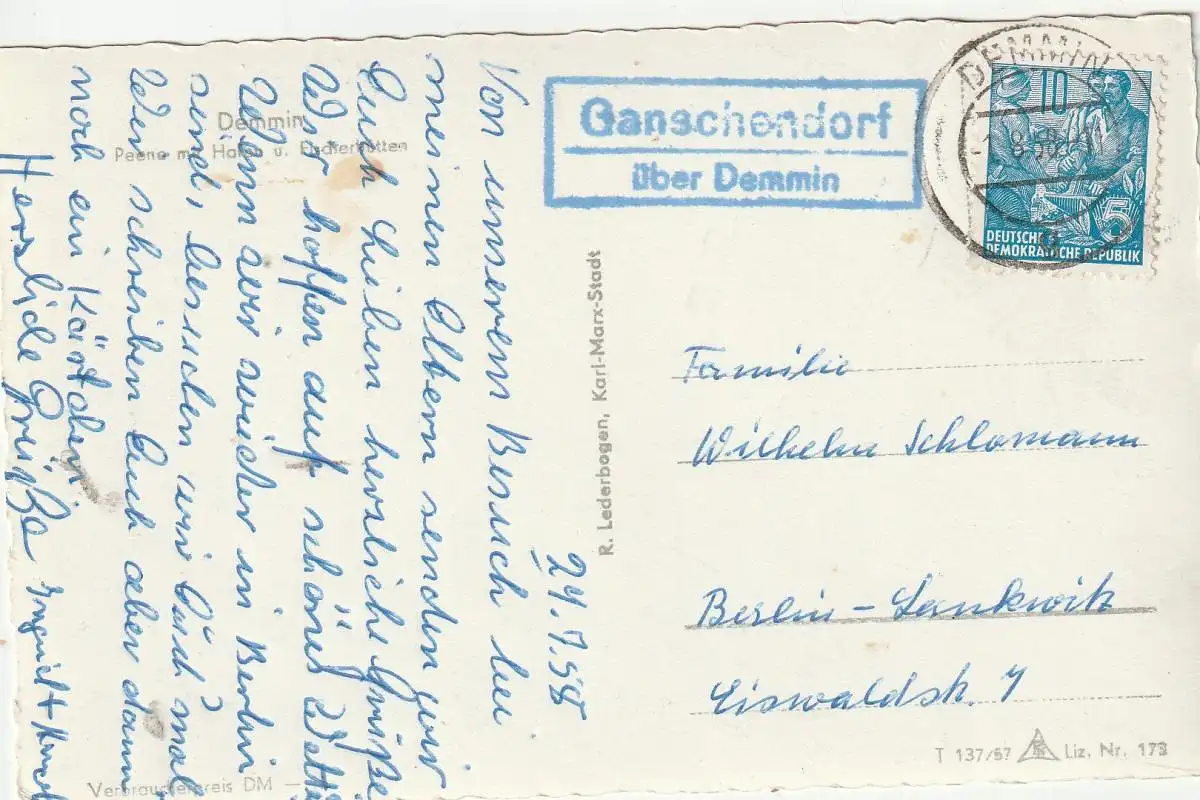 Demmin
Peene mit Hafen u. Fischerhütten
Ganschendorf
über Demmin
DEMMIN
8.58.-11
10
5
DEUTSCHE
DEMOKRATISCHE REPUBLIK
24.7.58
Von unserem Besuch bei
meinen Eltern senden wir
Euch Lieben herzliche Grüße
Wir hoffen auf schönes Wett
Wenn wir wieder in Berlin
send, besuchen wir Euch mal
Wir schreiben Euch aber dann
noch ein Kärtchen
Herzliche Grüße
R. Lederbogen, Karl-Marx-Stadt
Familie
Wilhelm Schlomann
Berlin-Lankwitz
Eiswaldstr. 7
T 137/57
Liz. Nr. 173
Verbraucherpreis DM